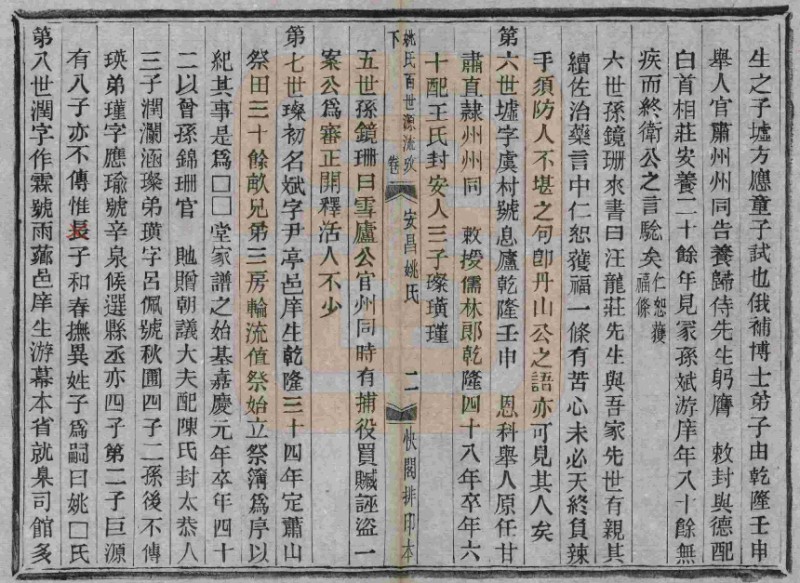 生之子墟方應童子試也俄補博士弟子由乾隆壬申
舉人官肅州州同告養歸侍先生躬膺　敕封與德配
白首相莊安養二十餘年見冢孫斌游庠年八十餘無
疾而終衛公之言驗矣仁恕獲福條
六世孫鏡珊來書曰汪龍莊先生與吾家先世有親其
續佐治藥言中仁恕獲福一條有苦心未必天終負辣
手須防人不堪之句卽丹山公之語亦可見其人矣
第六世墟字虞村號息廬乾隆壬申　恩科舉人原任甘
肅直隸州州同　敕授儒林郎乾隆四十八年卒年六
十配王氏封安人三子璨璜瑾
姚氏百世源流攷　卷下　安昌姚氏　二　快閣排印本
五世孫鏡珊曰雪廬公官州同時有捕役買贓誣盜一
案公爲審正開釋活人不少
第七世璨初名斌字尹亭邑庠生乾隆三十四年定蕭山
祭田三十餘畝兄弟三房輪流值祭始立祭簿爲序以
紀其事是爲□□堂家譜之始基嘉慶元年卒年四十
二以曾孫錦珊官　貤贈朝議大夫配陳氏封太恭人
三子潤瀾涵璨弟璜字呂佩號秋圃四子二孫後不傳
瑛弟瑾字應瑜號辛泉候選縣丞亦四子第二子巨源
有八子亦不傳惟長子和春撫異姓子爲嗣曰姚□氏
第八世潤字作霖號雨薌邑庠生游幕本省就臬司館多